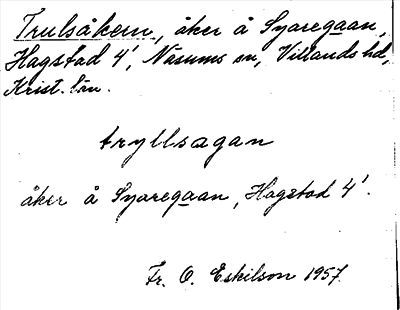 Trulsåkern, åker å Syaregaan,
Hagstad 4¹, Näsums sn, Villands hd,
Krist. län.
tryllsagan
åker å Syaregaan, Hagstad 4¹.
Fr. O. Eskilson 1957.